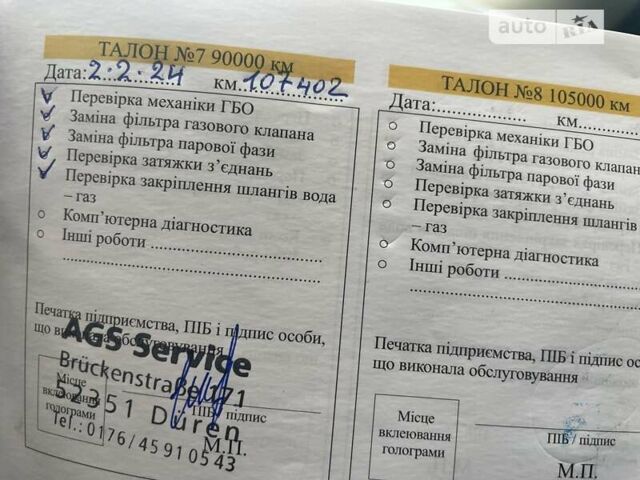 auto RIA
ТАЛОН №7 90000 км
Дата: 2.2.24 км. 107402
Перевірка механіки ГБО
Заміна фільтра газового клапана
Заміна фільтра парової фази
Перевірка затяжки з’єднань
Перевірка закріплення шлангів вода
– газ
Комп’ютерна діагностика
Інші роботи
Печатка підприємства, ПІБ і підпис особи,
що виконала обслуговування
AGS Service
Brückenstraße 171
52351 Düren
Tel.: 0176/45910543
Місце
вклеювання
голограми
ПІБ / підпис
М.П.
ТАЛОН №8 105000 км
Дата: км.
Перевірка механіки ГБО
Заміна фільтра газового клапан
Заміна фільтра парової фази
Перевірка затяжки з’єднань
Перевірка закріплення шлангів
– газ
Комп’ютерна діагностика
Інші роботи
Печатка підприємства, ПІБ і підпис ос
що виконала обслуговування
Місце
вклеювання
голограми
ПІБ / підпис
М.П.